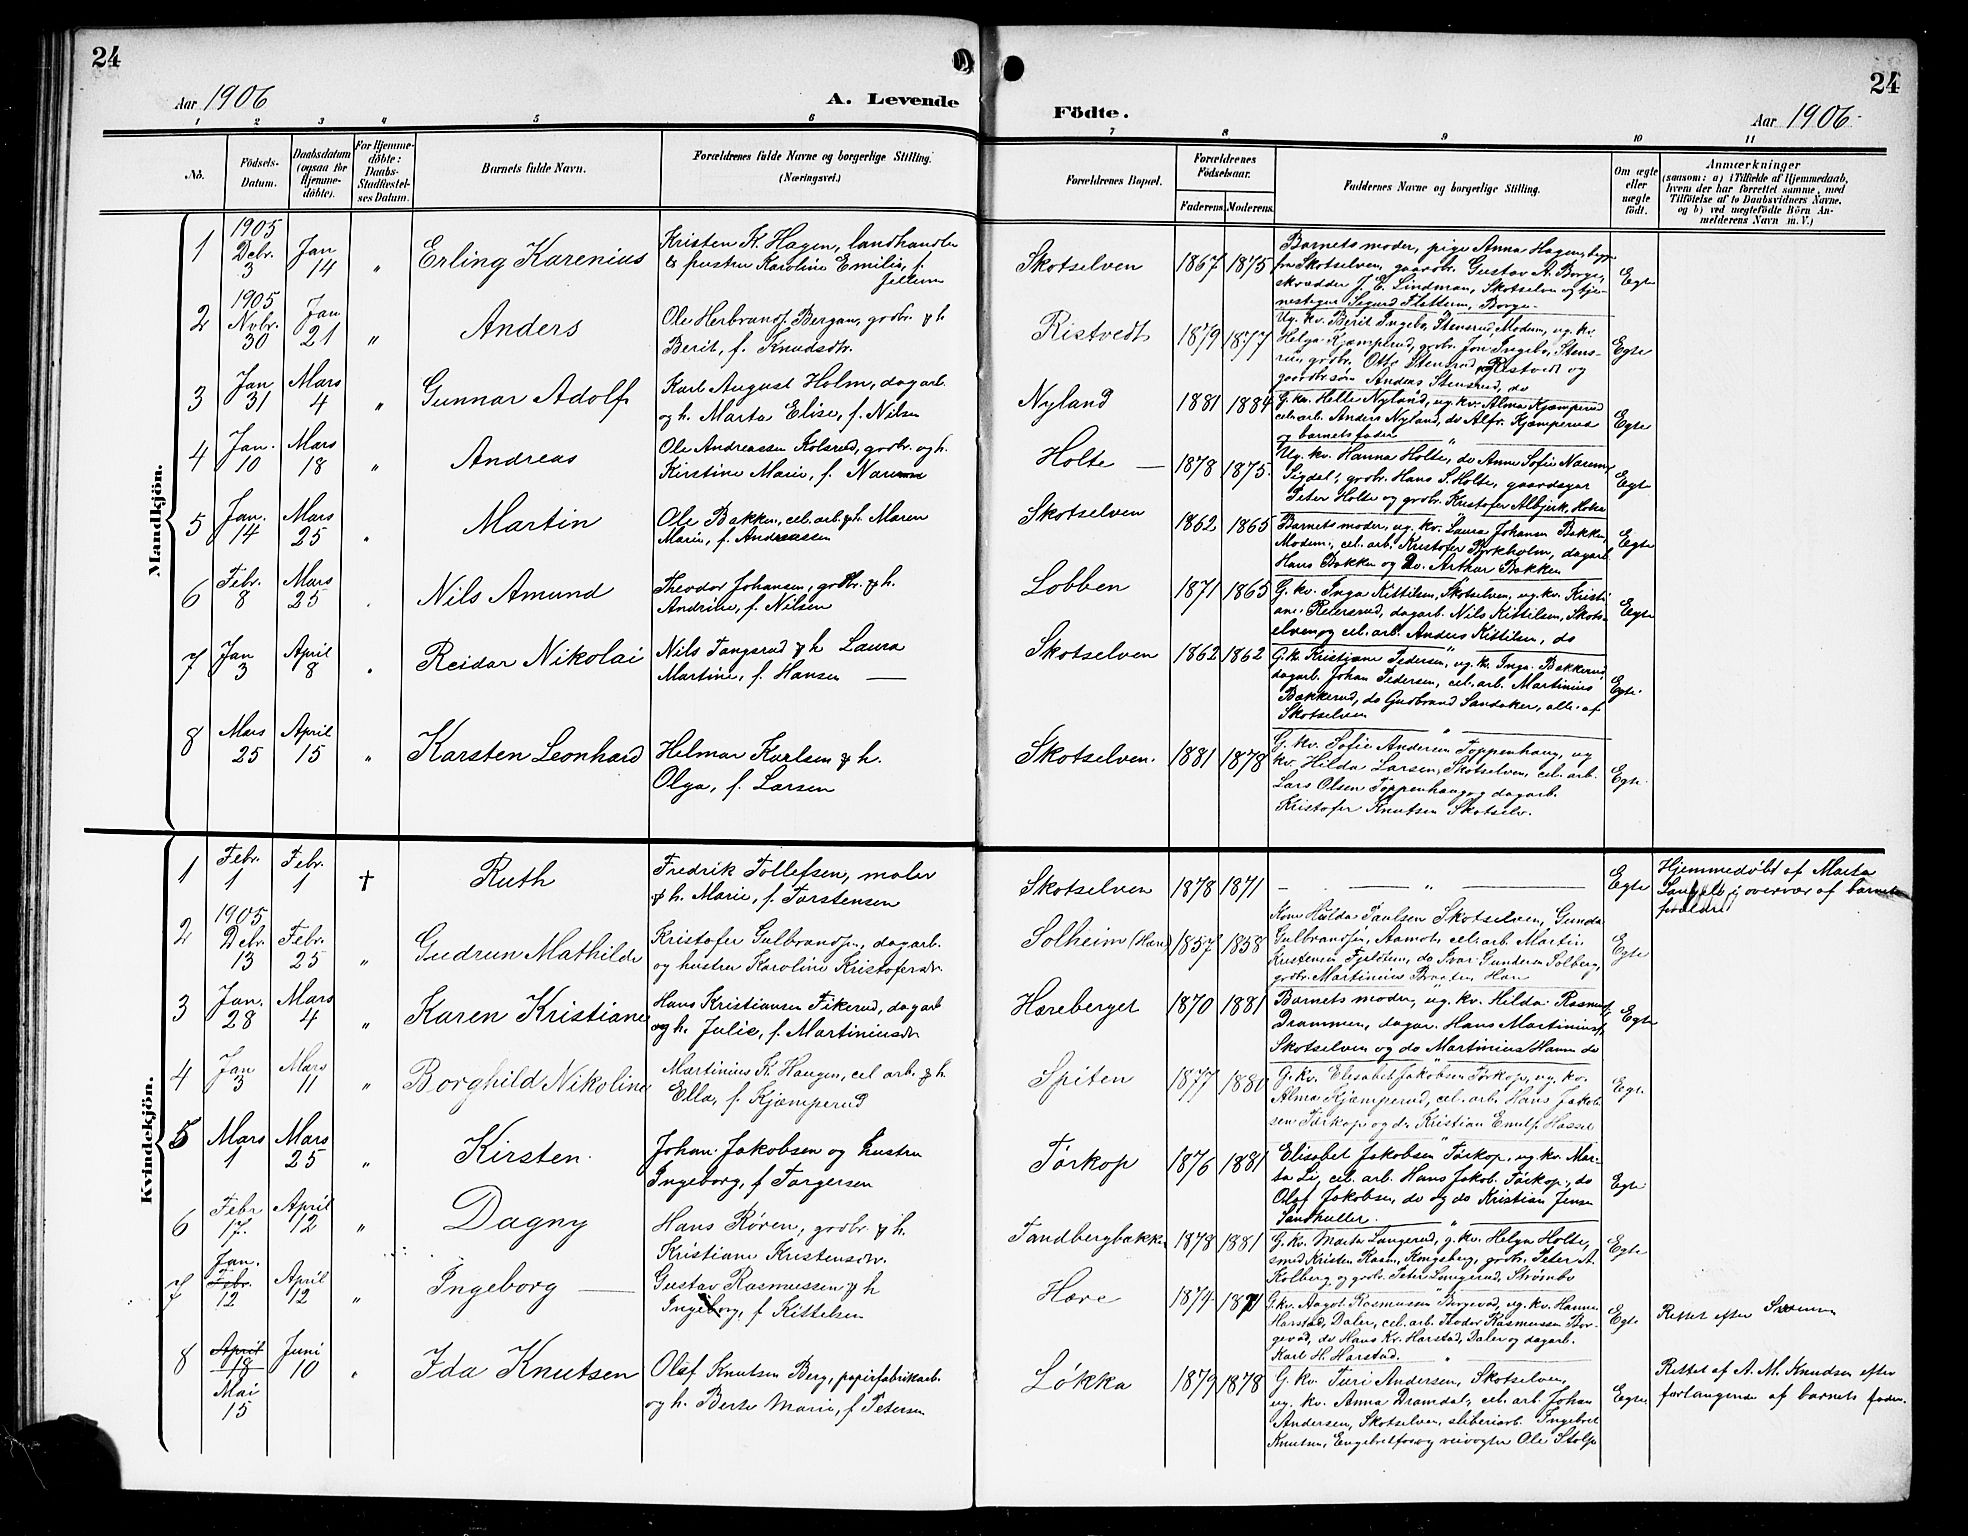 24
Aar 1906
A. Levende
1 2 3 4 5 6
No.
Födsels-Datum.
Daabsdatum (ogsaa for Hjemmedöbte).
For Hjemmedöbte: Daabs-Stadfæstelses Datum.
Barnets fulde Navn.
Forældrenes fulde Navne og borgerlige Stilling.
(Næringsvei.)
Mandkjön.
1 1905 Debr. 3 Jan 14 „ Erling Karenius Kristen K. Hagen, landhandler
& hustru Karoline Emilie, f.
Jellum
2 1905 Nvbr. 30 Jan 21 „ Anders Ole Herbrandsen Bergan, grdbr. & h.
Berit, f. Knudsdtr.
3 Jan 31 Mars 4 „ Gunnar Adolf Karl August Holm, dagarb.
og h. Marta Elise, f. Nilsen
4 Jan. 10 Mars 18 „ Andreas Ole Andreassen Kolsrud, grdbr. og h.
Kirstine Marie, f. Narum
5 Jan. 14 Mars 25 „ Martin Ole Bakken, cel. arb. & h. Maren
Marie, f. Andreassen
6 Febr. 8 Mars 25 „ Nils Amund Theodor Johansen, grdbr. & h.
Andrine, f. Nilsen
7 Jan 3 April 8 „ Reidar Nikolai Nils Tangsrud & h Laura
Martine, f. Hansen
8 Mars 25 April 15 „ Karsten Leonhard Helmar Karlsen & h.
Olga, f. Larsen
Kvindekjön.
1 Febr. 1 Febr. 1 † Ruth Fredrik Tollefsen, maler
& h. Marie, f. Torstensen
2 1905 Debr. 13 Febr. 25 „ Gudrun Mathilde Kristofer Gulbrandsen, dagarb.
og hustru Karoline Kristofersdtr.
3 Jan. 28 Mars 4 „ Karen Kristiane Hans Kristiansen Fikerud, dagarb
og h. Julie, f. Martiniusdtr
4 Jan 3 Mars 11 „ Borghild Nikoline Martinius K. Haugen, cel. arb. & h.
Ella, f. Kjæmperud
5 Mars 1 Mars 25 „ Kirsten Johan Jakobsen og hustru
Ingeborg, f Torgersen
6 Febr 17. April 12 „ Dagny Hans Røren, grdbr. & h.
Kristiane Kristensdtr.
7 Jan. Febr. 12 April 12 „ Ingeborg Gustav Rasmussen & h
Ingeborg, f. Kittelsen
8 April 18 Mai 15 Juni 10 „ Ida Knutsen Olaf Knutsen Berg, papirfabrikarb.
og h. Berte Marie, f. Petersen
24
Födte.
Aar 1906
7 8 9 10 11
Forældrenes Bopæl.
Forældrenes Födselsaar.
Faderens. Moderens.
Faddernes Navne og borgerlige Stilling.
Om ægte eller uægte födt.
Anmærkninger
(saasom: a) i Tilfælde af Hjemmedaab,
hvem der har forrettet samme, med
Tilföielse af to Daabsvidners Navne,
og b) ved uægtefödte Börn An-
melderens Navn m. V.)
Skotselven 1867 1875 Barnets moder, pige Anna Hagen, begge
fra Skotselven, gaardbr. Gustav A. Borge,
skrædder J. E. Lindman, Skotselven og tje-
nestegut Sigurd Flattum, Borge. Egte
Ristvedt 1879 1877 Ug. kv. Berit Ingebo, Stensrud, Modum, ug. kv
Helga Kjæmperud, grdbr. Jon Ingebo, Stens-
rud, grdbr. Otto Stensrud, Ristvedt og
gaardbrsøn Anders Stensrud, do Egte
Nyland 1881 1884 G. kv. Helle Nyland, ug. kv. Alma Kjæmperud
cel. arb. Anders Nyland, do Alfr. Kjæmperud
og barnets fader Egte
Holte 1878 1875. Ug. kv. Hanna Holte, do Anne Sofie Narum,
Sigdal, grdbr. Hans S. Holte, gaardsgut
Peter Holte og grdbr. Kristofer Albjerk, Holte Egte
Skotselven 1862 1865 Barnets moder, ug. kv. Laura Johansen Bakken,
Modum, cel. arb. Kristofer Pyrkholm, dagarb
Hans Bakken og Arthur Bakken Egte
Lobben 1871 1865 G. kv. Inga Kittilsen, Skotselven, ug. kv. Kristi
ane Reiersrud, dagarb. Nils Kittilsen, Skots-
elven og cel. arb. Anders Kittilsen, do Egte
Skotselven 1862 1862 G. kv. Kristiane Pedersen, ug. kv. Inga Bakkerud,
dagarb. Johan Pedersen, cel. arb. Martinius
Bakkerud, do Gudbrand Sandaker, alle af
Skotselven Egte
Skotselven. 1881 1878 G. kv. Sofie Andersen Toppenhaug, ug
kv. Hilda Larsen, Skotselven, cel. arb.
Lars Olsen Toppenhaug og dagarb.
Kristofer Knutsen Skotselv. Egte
Skotselven 1878 1871 „ Egte Hjemmedøbt af Marta
i overvær af barnets
forældre
Solheim (Hære) 1857 1858 Kone Hulda Paulsen Skotselven, Gunda
Gulbrandsen, Aamot, cel. arb. Martin
Kristensen Fjeldheim, do Svar Gundersen Solberg,
grdbr. Martinius Braaten Egte
Hæreberget 1870 1881 Barnets moder, ug. kv. Hilda Rasmussen,
Drammen, dagar. Hans Martiniussen,
Skotselven og do Martinius Hansen do Egte
Spiten 1877 1880 G. kv. Elisabet Jakobsen Tørkop, ug. kv.
Alma Kjæmperud, cel. arb. Hans Jakob-
sen Tørkop og do Kristian Emilsen Hassel Egte
Tørkop 1876 1881 Elisabet Jakobsen Tørkop, ug. kv. Mar-
ta Li, cel. arb. Hans Jakob. Tørkop, do
Olaf Jakobsen, do og do Kristian Jensen
Sandhuller. Egte
Tandbergbakken 1878 1881 G. kv. Marte Langerud, g. kv. Helga Holte,
smed Kristen Raaen, Kongsberg, grdbr. Peter A.
Kolberg og grdbr. Peter Langerud, Strømbo Egte
Hære 1874 1871 G. kv. Aagot Rasmussen Borgevad, ug. kv. Hanna
Harstad, Daler, cel. arb. Teodor Rasmussen Bor-
gevad, do Hans Kr. Harstad, Daler og dagarb.
Karl H. Harstad. Egte Rettet efter
Løkka 1879 1878 G. kv. Turi Andersen, Skotselven,
ug. kv. Anna Dramdal, cel. arb. Johan
Andersen, Skotselven, sliberiarb. Ingebret
Knutsen, Engebretfos og veivogter Ole Stolp Egte Rettet af A. M. Knudsen efter
forlangende af barnets fader.